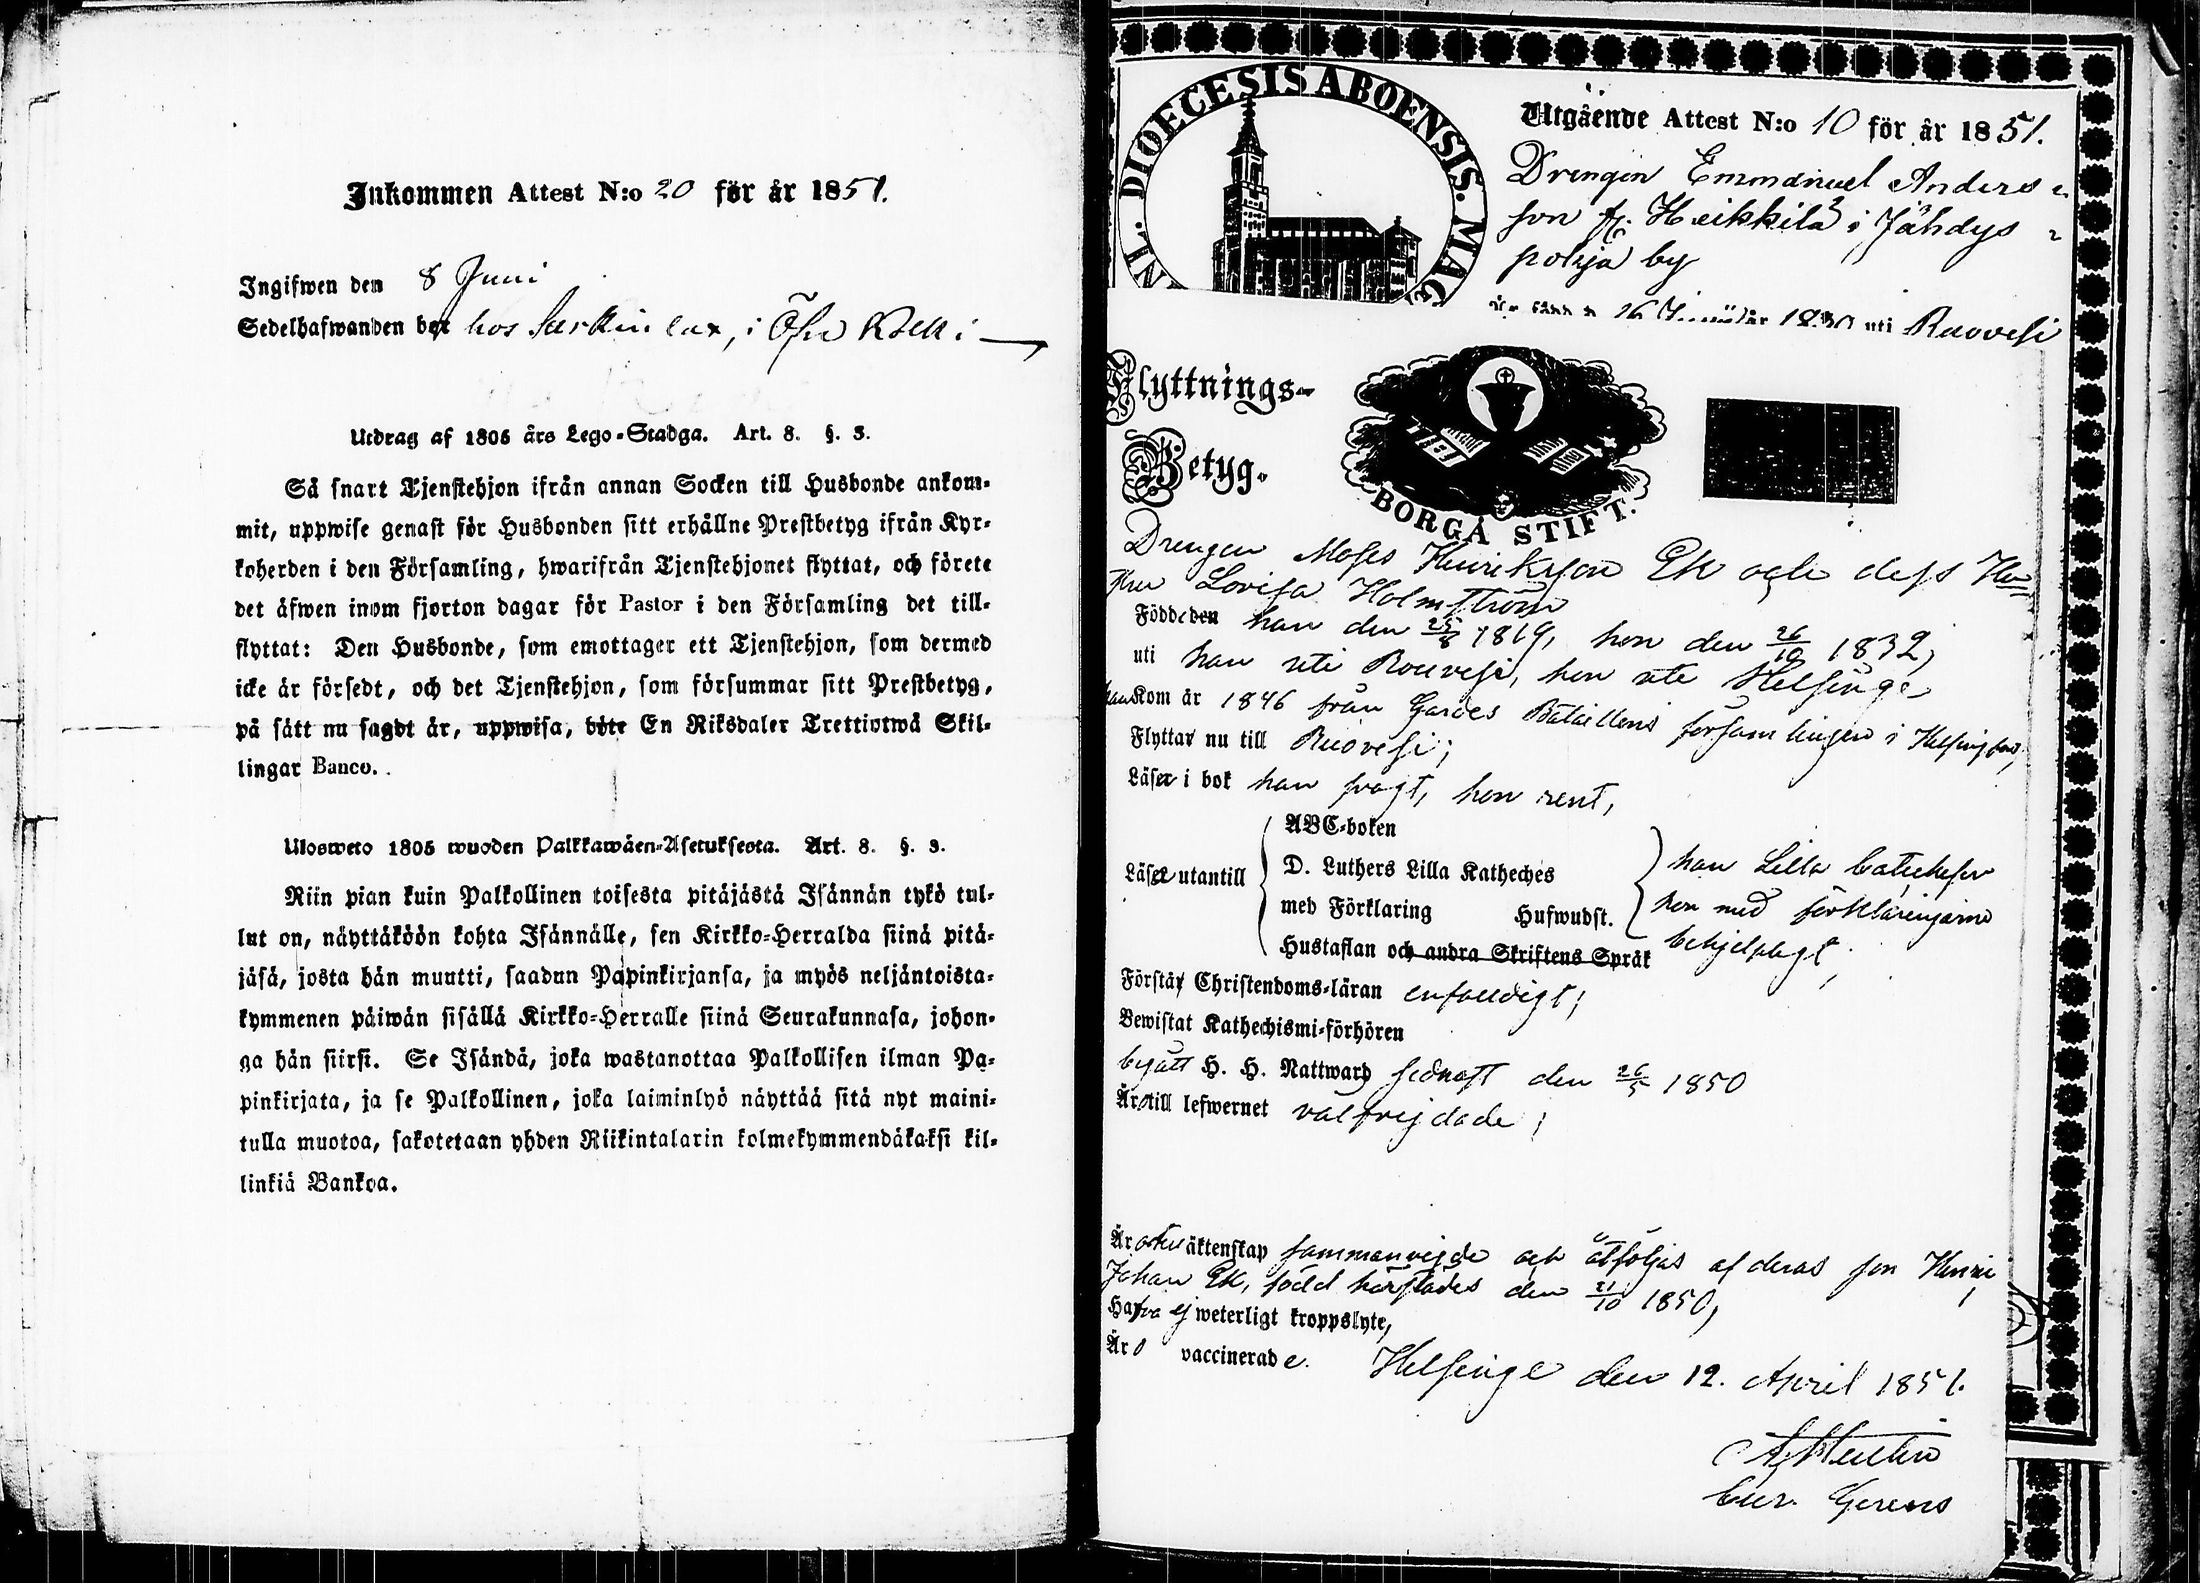 Inkommen Attest N:o 20 för år 1851.
Ingifwen den 8 Juni
Sedelhafwanden bor hos i
Utdrag af 1805 års Lego-Stadga. Art. 8. §. 3.
Så snart Tjenstehjon ifrån annan Socken till Husbonde ankom-
mit, uppwise genast för Husbonden sitt erhållne Prestbetyg ifrån Kyr-
koherden i den Församling, hwarifrån Tjenstehjonet flyttat, och förete
det äfwen inom fjorton dagar för Pastor i den Församling det till-
flyttat: Den Husbonde, som emottager ett Tjenstehjon, som dermed
icke är försedt, och det Tjenstehjon, som försummar sitt Prestbetyg,
på sätt nu sagdt är, uppwisa, böte En Riksdaler Trettiotwå Skil-
lingar Banco.
Ulosweto 1805 wuoden Palkkawäen-Asetuksesta. Art. 8. §. 3.
Niin pian kuin Palkollinen toisesta pitäjästä Isännän tykö tul-
lut on, näyttäköön kohta Isännälle, sen Kirkko-Herralda siinä pitä-
jäsä, josta hän muutti, saadun Papinkirjansa, ja myös neljäntoista-
kymmenen päiwän sisällä Kirkko-Herralle siinä Seurakunnasa, johon-
ga hän siirsi. Se Isändä, joka wastanottaa Palkollisen ilman Pa-
pinkirjata, ja se Palkollinen, joka laiminlyö näyttää sitä nyt maini-
tulla muotoa, sakotetaan yhden Riikintalarin kolmekymmendäkaksi kil-
linkiä Bankoa.
NL. DIOECESIS ABOENSIS. MAG
Utgående Attest N:o 10 för år 1851.
Drengen Emmanuel Anders-
son fr. Heikkilä i Jähdys-
pohja by
16 uti Ruovesi
Flyttnings-
Betyg.
BORGÅ STIFT.
Drengen Moses Henriksson Ek och dess Hu-
stru Lovisa Holmström
Födde den han den 25/8 1819, hon den 26/10 1832,
uti han uti Rouvesi, hon uti Helsinge
han Kom år 1846 från Gardes Bataillons församlingen i Helsingfors,
Flyttar nu till Ruovesi;
Läser i bok han svagt, hon rent,
ABC-boken
Läser utantill D. Luthers Lilla Katheches han Lilla Catechesen
med Förklaring Hufwudst. hon med förklaringarne
Hustaflan och andra Skriftens Språk behjelpligt,
Förstår Christendoms-läran enfaldigt;
Bewistat Kathechismi-förhören
begått H. H. Nattward sednast den 26/5 1850
Äro till lefwernet välfrejdade;
Äro äktenskap sammanvigde och åtföljas af deras son Henric
Johan Ek, född härstädes den 21/10 1850,
Hafva ej weterligt kroppslyte,
Äro vaccinerade.
Helsinge den 12. April 1851.